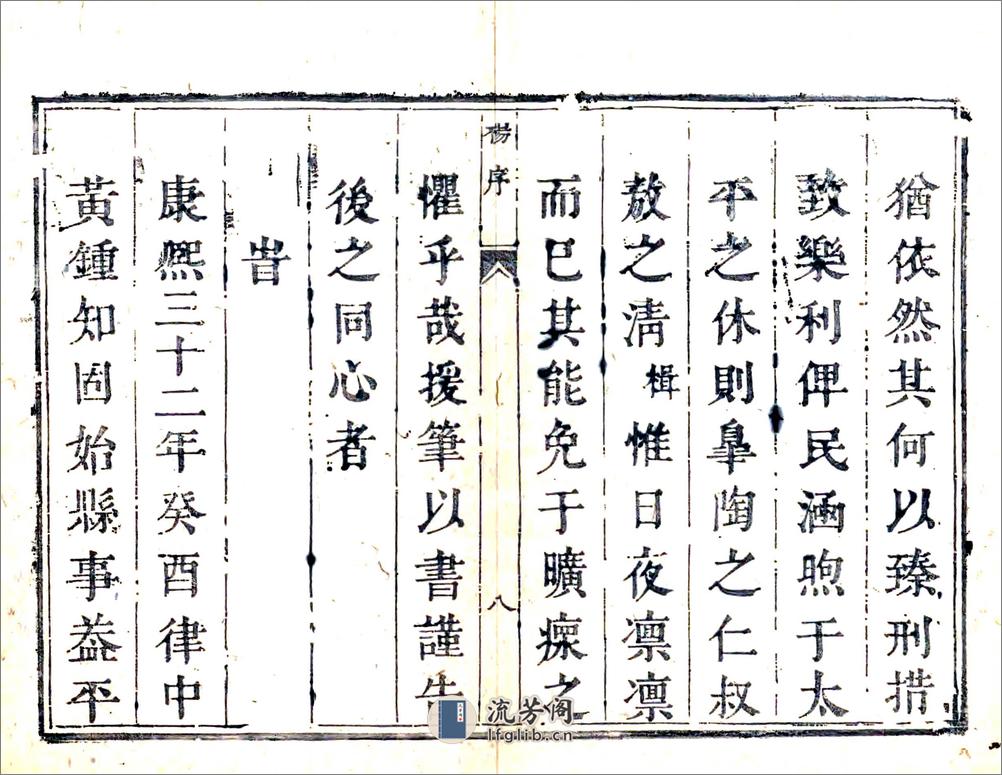 猶依然其何以臻刑措
致樂利俾民涵煦于太
平之休則臯陶之仁叔
敖之清楫惟日夜凛凛
而已其能免于曠瘝之
楊序
八
懼乎哉援筆以書謹告
後之同心者
旹
康熙三十二年癸酉律中
黃鍾知固始縣事益平
流芳阁
lfglib.cn